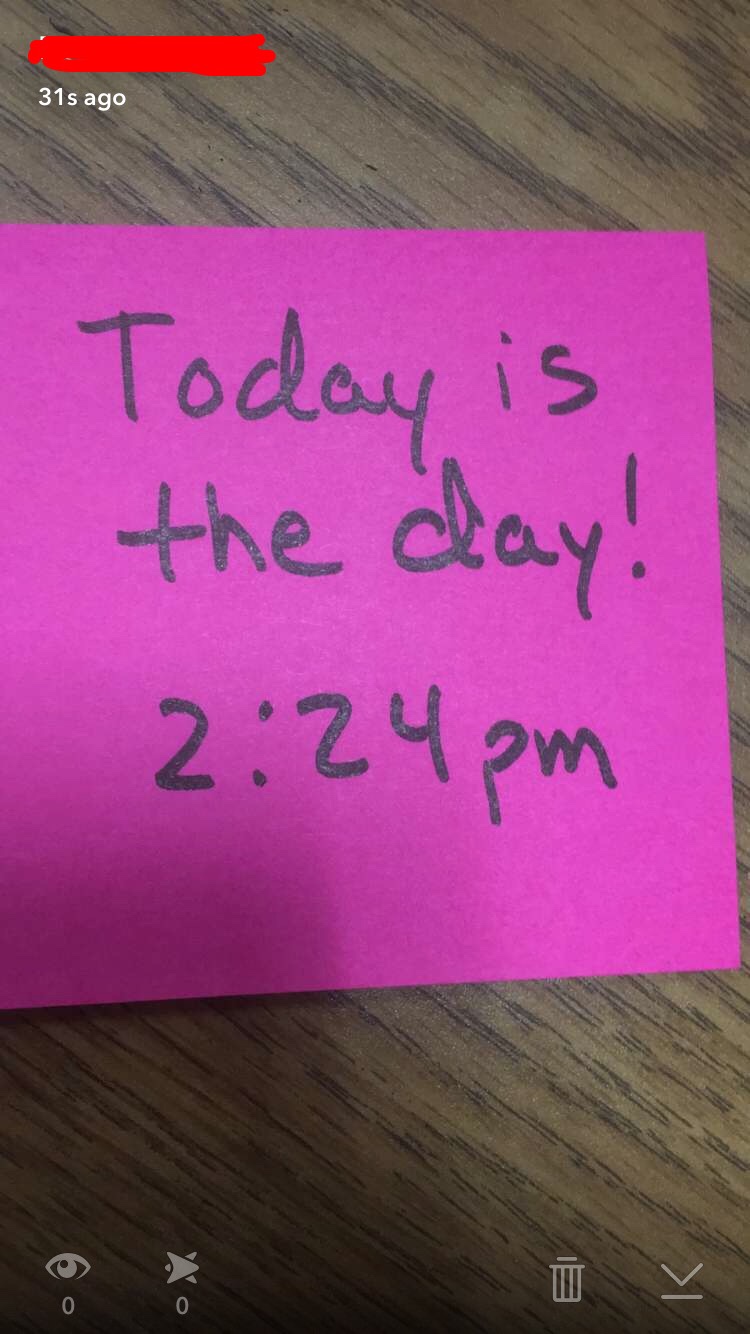 31s ago
Today is
the day!
2:24pm
0 0